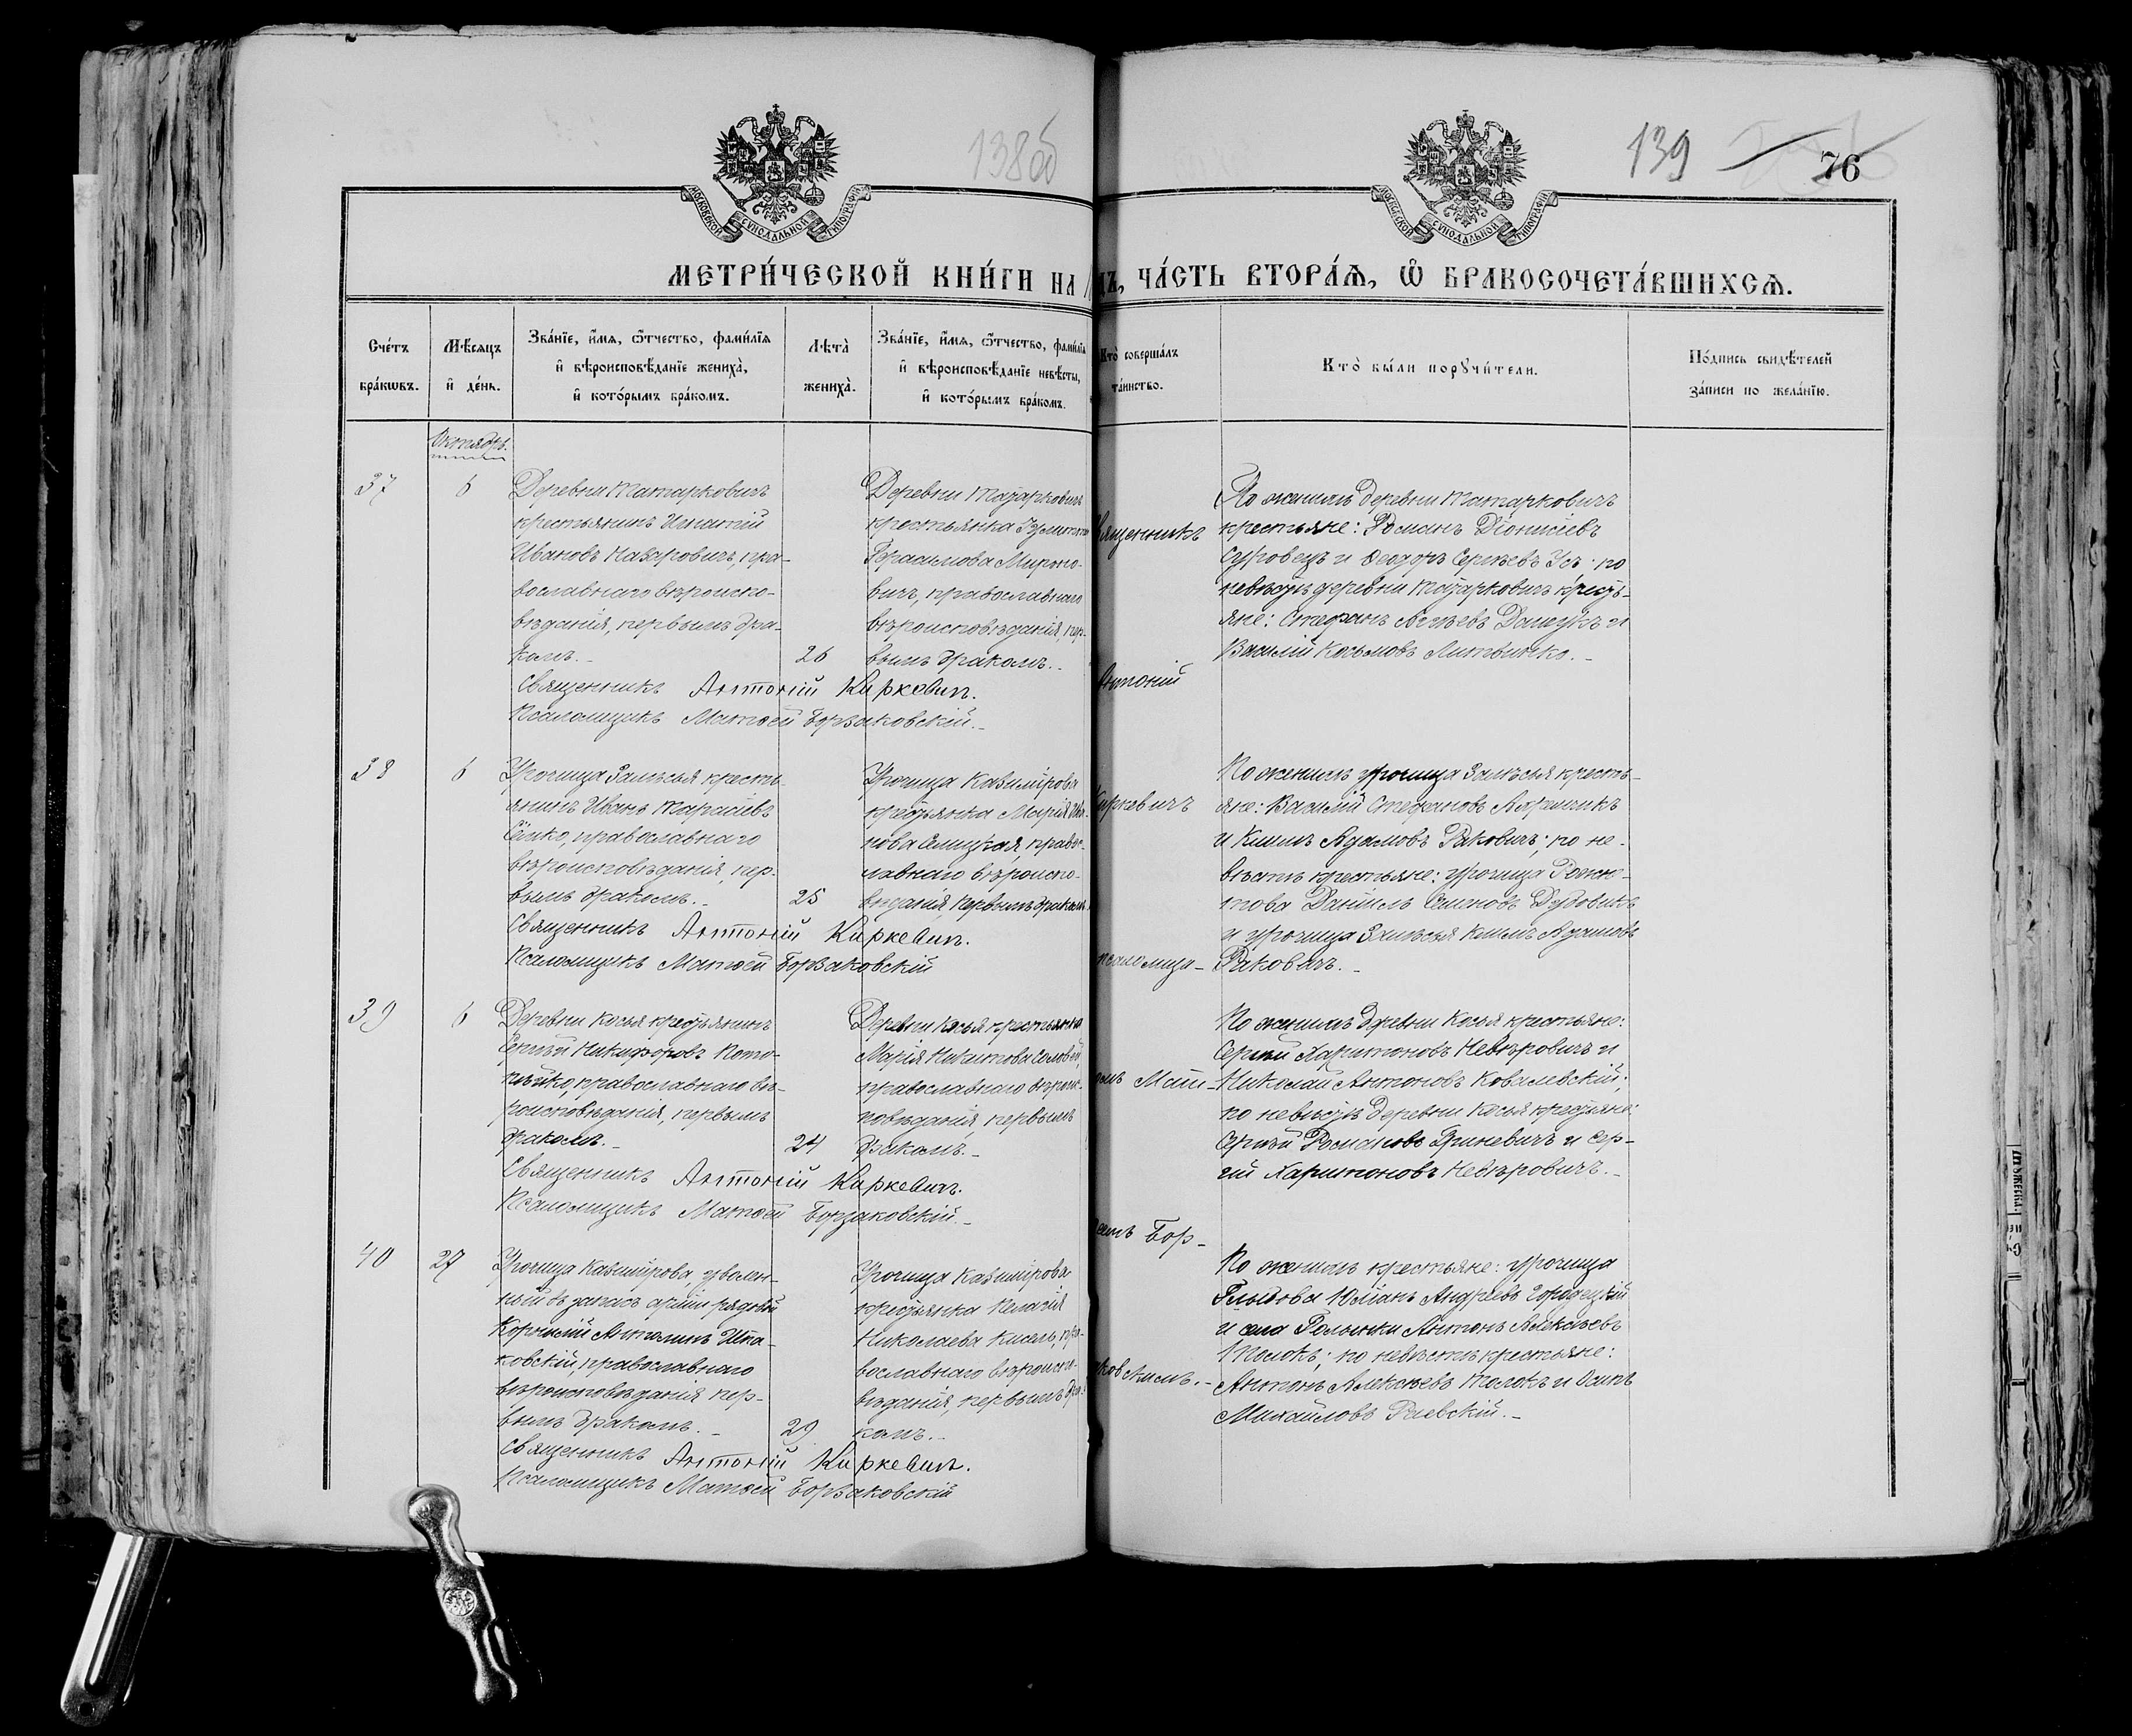 138об
139
76
МОСКОВСКОЙ СѴНОДАЛЬНОЙ ТИПОГРАФІИ
МОСКОВСКОЙ СѴНОДАЛЬНОЙ ТИПОГРАФІИ
МЕТРИ́ЧЕСКОЙ КНИ́ГИ НА
ДЪ, ЧА́СТЬ ВТОРА́Ѧ, Ѿ БРАКОСОЧЕТА́ВШИХСѦ.
Сче́тъ бра́кωвъ.
Мѣ́сяцъ и҆ де́нь.
Зва́нїе, и҆́мѧ, ѻ҆́тчество, фами́лїѧ
и҆ вѣроисповѣ́данїе жениха̀,
и҆ кото́рымъ бра́комъ.
Лѣта̀ жениха̀.
Зва́нїе, и҆́мѧ, ѻ҆́тчество, фами́лїѧ
и҆ вѣроисповѣ́данїе невѣ́сты,
и҆ кото́рымъ бра́комъ.
Кто̀ соверша́лъ
та́инство.
Кто̀ бы́ли порꙋчи́тели.
По́дпись свидѣ́телей
за́писи по жела́нїю.
Октябрь.
37
6
Деревни Татарковичъ
крестьянинъ Игнатій
Ивановъ Назаровичъ, пра-
вославнаго вѣроиспо-
вѣданія, первымъ бра-
комъ.
26
Деревни Татарковичъ
крестьянка
Герасимова Мироно-
вичъ, православнаго
вѣроисповѣданія, пер-
вымъ бракомъ.
Священникъ
По женихѣ деревни Татарковичъ
крестьяне: Романъ Діонисіевъ
Суровецъ и Ѳеодоръ Сергѣевъ Усъ; по
невѣстѣ деревни Татарковичъ кресть-
яне: Стефанъ и
Василій Косьмовъ Литвинко.
Священникъ Антоній Киркевич.
Псаломщикъ Матѳей Борзаковскій.
Антоній
38
6
Урочища Залѣсья кресть-
янинъ Иванъ Тарасіевъ
православнаго
вѣроисповѣданія, пер-
вымъ бракомъ.
25
Урочища Казимірова
крестьянка Марія Ива-
нова Селицкая, правос-
лавнаго вѣроиспо-
вѣданія, первымъ бракомъ.
Киркевичъ
По женихѣ урочища Залѣсья кресть-
яне: Василій Стефановъ
и Климъ Адамовъ Раковичъ; по не-
вѣстѣ крестьяне: урочища
Даніилъ Семеновъ
и урочища Залѣсья Климъ Адамовъ
Раковичъ.
Священникъ Антоній Киркевич.
Псаломщикъ Матѳей Борзаковскій
псаломщи-
39
6
Деревни Косья крестьянинъ
Сергѣй Никифоровъ
православнаго вѣ-
роисповѣданія, первымъ
бракомъ.
24
Деревни Косья крестьянка
Марія Никитова Соловей,
православнаго вѣроис-
повѣданія, первымъ
бракомъ.
комъ Матѳ-
По женихѣ деревни Косья крестьяне:
Сергѣй Харитоновъ Невѣровичъ и
Николай Антоновъ Ковалевскій;
по невѣстѣ деревни Косья крестьяне:
Сергѣй Романовъ Гриневичъ и Сер-
гѣй Харитоновъ Невѣровичъ.
Священникъ Антоній Киркевичъ.
Псаломщикъ Матѳей Борзаковскій.
еемъ Бор-
40
27
Урочища Казимірова, уволен-
ный въ запасъ арміи рядовой
Корнилій Антоновъ
православнаго
вѣроисповѣданія, пер-
вымъ бракомъ.
29
Урочища Казимірова
крестьянка Пелагія
Николаева Кисель, пра-
вославнаго вѣроиспо-
вѣданія, первымъ бра-
комъ.
заковскимъ.
По женихѣ крестьяне: урочища
Юліанъ Андреевъ Городецкій
и села Антонъ Алексѣевъ
Толокъ; по невѣстѣ крестьяне:
Антонъ Алексѣевъ Толокъ и Осипъ
Михайловъ Раевскій.
Священникъ Антоній Киркевич.
Псаломщикъ Матѳей Борзаковскій